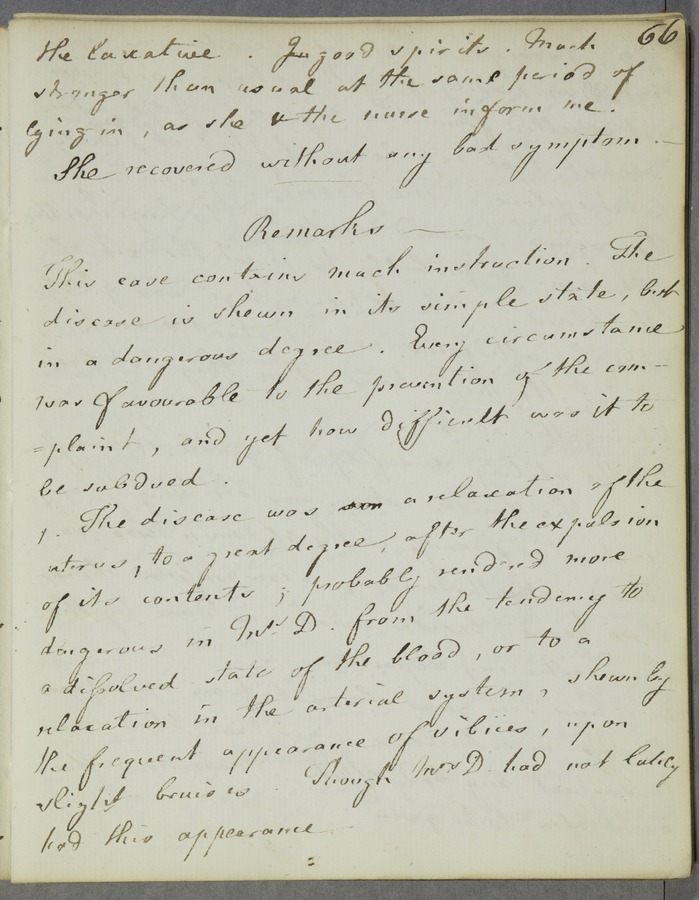 66
the laxative. In good spirits. Much
stronger than usual at the same period of
lying in, as she & the nurse inform me.
She recovered without any bad symptom.
Remarks
This case contains much instruction. The
disease is shewn in its simple state, but
in a dangerous degree. Every circumstance
was favourable to the prevention of the com-
=plaint, and yet how difficult was it to
be subdued.
1. The disease was a relaxation of the
uterus, to a great degree, after the expulsion
of its contents; probably rendered more
dangerous in Mrs D. from the tendency to
a dissolved state of the blood, or to a
relaxation in the arterial system, shewn by
the frequent appearance of vibices, upon
slight bruises. Though Mrs D. had not lately
had this appearance